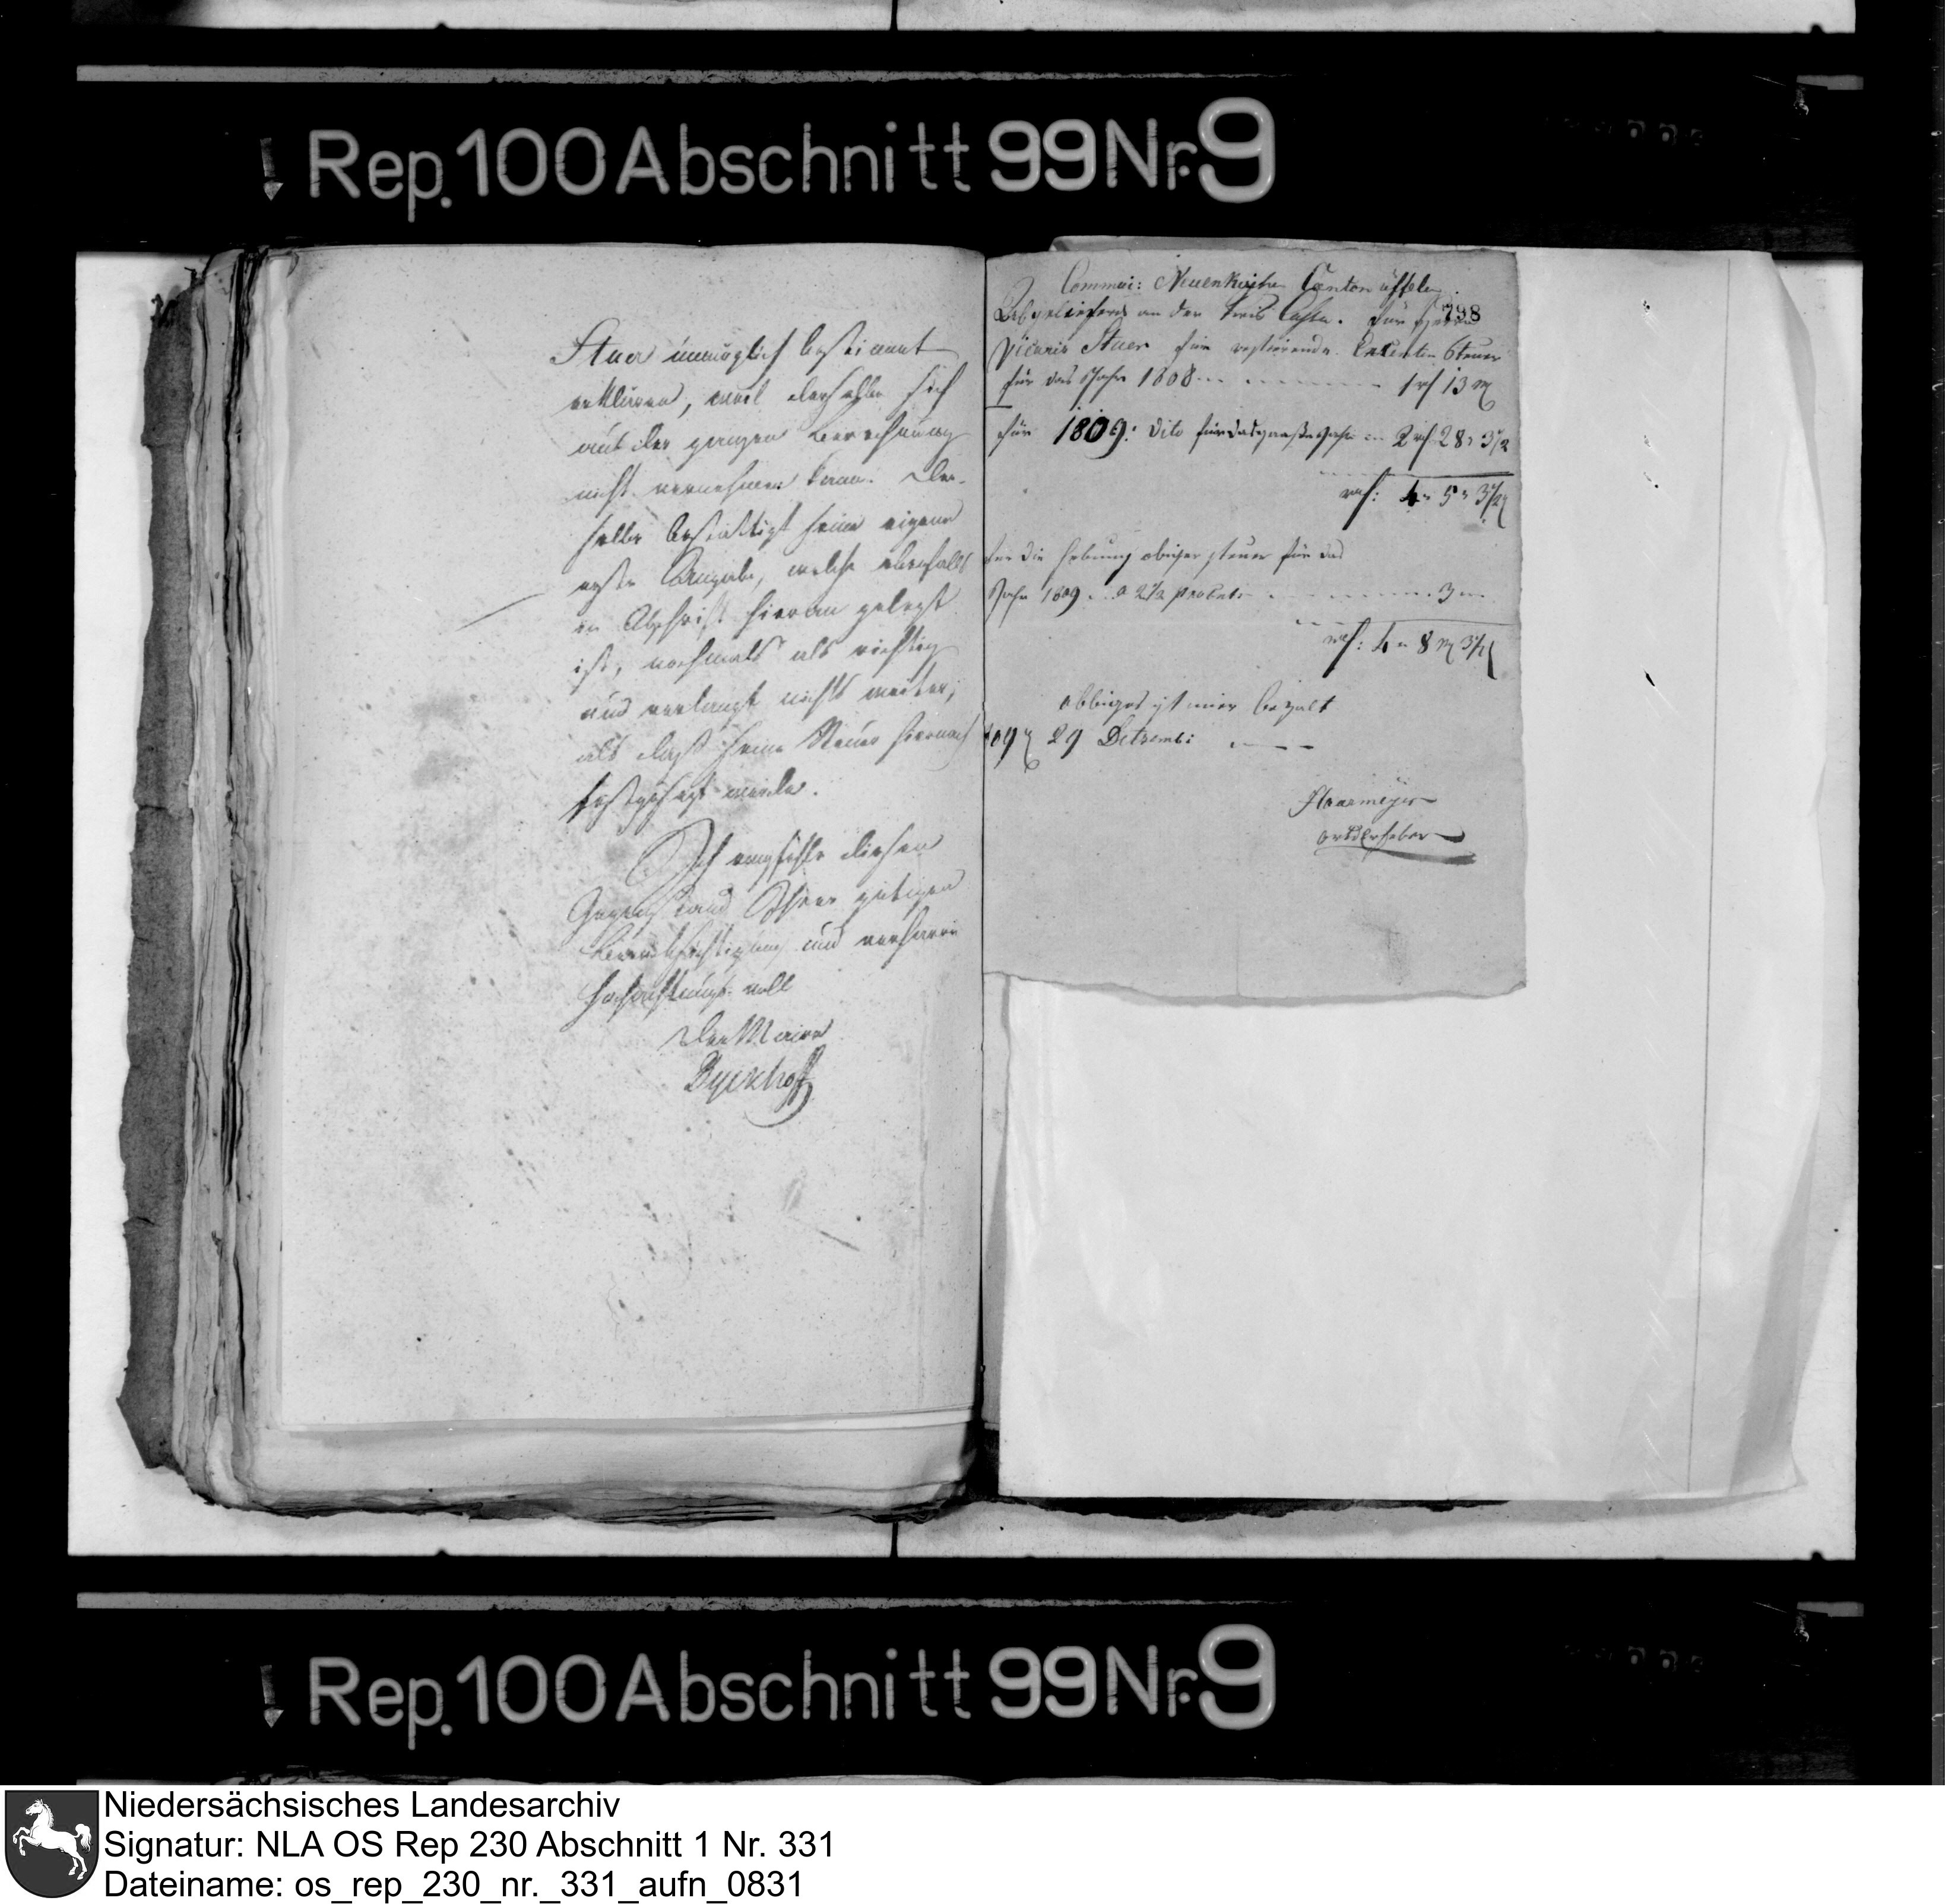 Rep. 100 Abschnitt 99 Nr. 9
Stuer unmöglich bestimmt
erklären, weil derselbe sich
aus der ganzen Berechnung
nicht vernehmen kann. Der-
selbe bestättigt seine eigene
erste Angabe, welche ebenfalls
in Abschrift hieran gelegt
ist, nochmals als richtig
und verlangt nichts weiter,
als daß seine Steuer hiernach
festgesetzt werde.
Ich empfehle diesen
Gegenstand Ihrer gütigen
Berücksichtigung und verharre
hochachtungsvoll
Der Maire
Dyckhoff
798
Commui: Neuenkirche Canton üffeln
Abgeliefert an der Kreis Casse. für Herrn
Vicaris Stuer für restirende Steuer
für das Jahr 1808 1 rh 13
für 1809: dito für das ganße Jahr 2 rh 28 3 1/2
rh: 4 " 5 " 3 1/2
für die Hebung obiger steuer für das
Jahr 1809 a 2 1/2 procent 3
rh: 4 " 8 3 1/2
obbiges ist mier bezalt
1809 29 Detzemb:
ortserheber
Rep. 100 Abschnitt 99 Nr. 9
Niedersächsisches Landesarchiv
Signatur: NLA OS Rep 230 Abschnitt 1 Nr. 331
Dateiname: os_rep_230_nr._331_aufn_0831